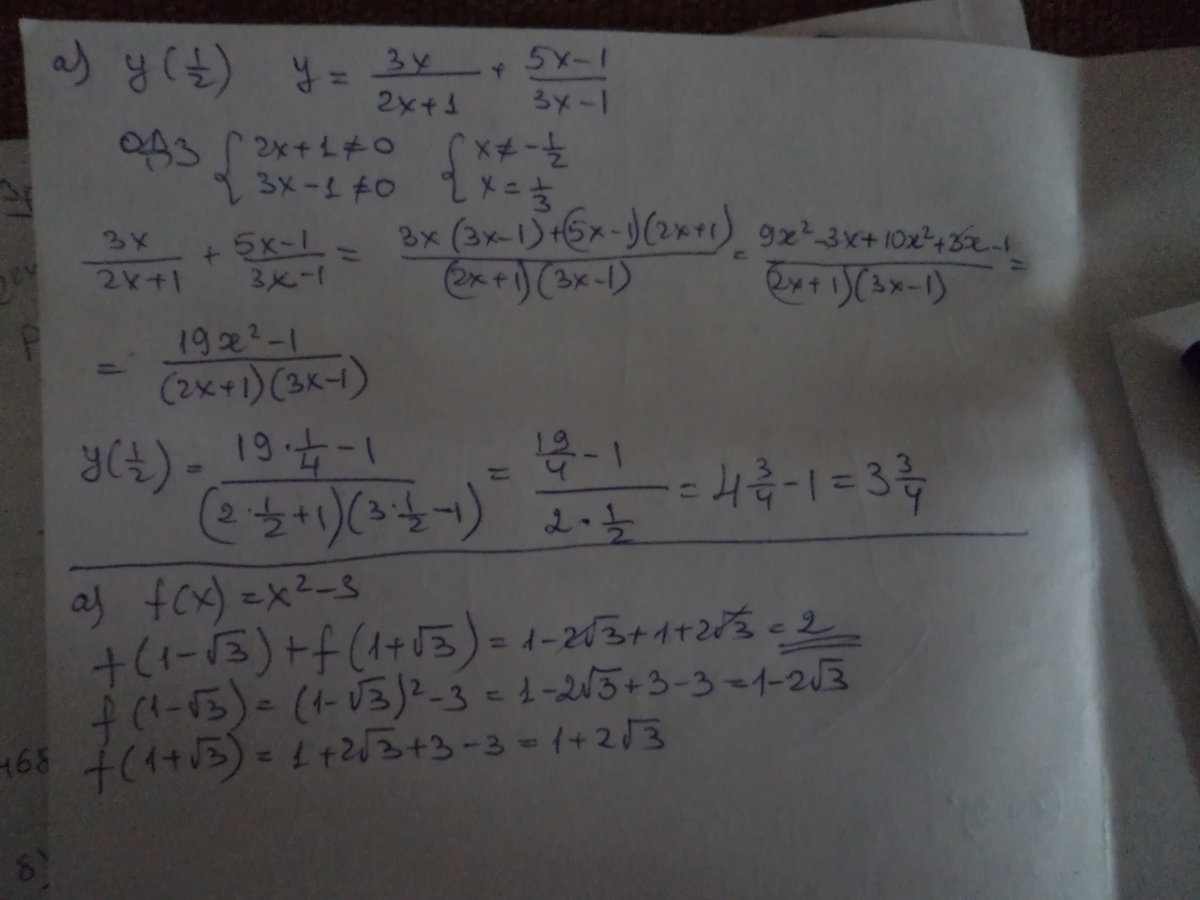 а) y(1/2) y = 3x/(2x+1) + (5x-1)/(3x-1)
ОДЗ { 2x+1≠0 { x≠-1/2
3x-1≠0 x=1/3
3x/(2x+1) + (5x-1)/(3x-1) = (3x(3x-1)+(5x-1)(2x+1))/((2x+1)(3x-1)) = (9x²-3x+10x²+3x-1)/((2x+1)(3x-1)) =
= (19x²-1)/((2x+1)(3x-1))
y(1/2) = (19·1/4-1)/((2·1/2+1)(3·1/2-1)) = (19/4-1)/(2·1/2) = 4 3/4-1 = 3 3/4
а) f(x) = x²-3
f(1-√3)+f(1+√3) = 1-2√3+1+2√3 = 2
f(1-√3) = (1-√3)²-3 = 1-2√3+3-3 = 1-2√3
f(1+√3) = 1+2√3+3-3 = 1+2√3
468
8)